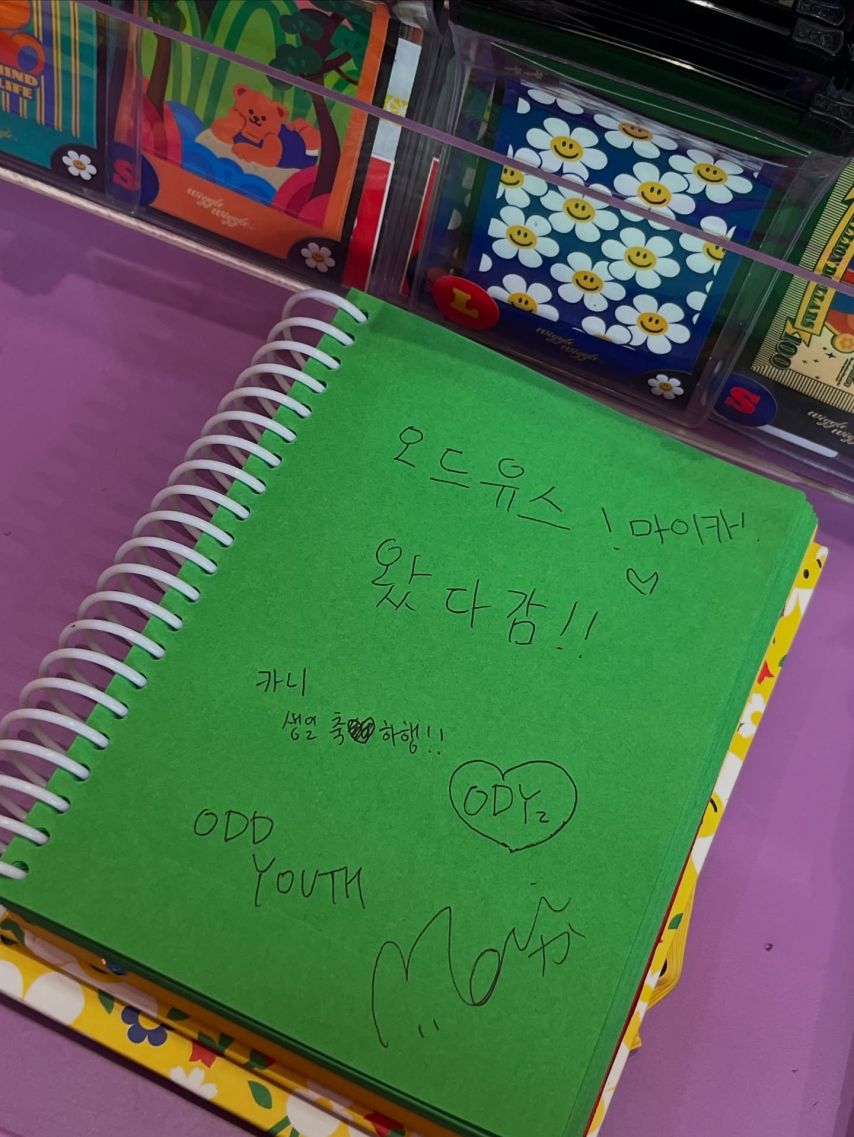 MIND
LIFE
S
wiggle
wiggle
L
wiggle
wiggle
S
100
wiggle
오드유스! 마이카!
♡
왔다감!!
카니
생일 축 하행!!
ODY
ODD
YOUTH